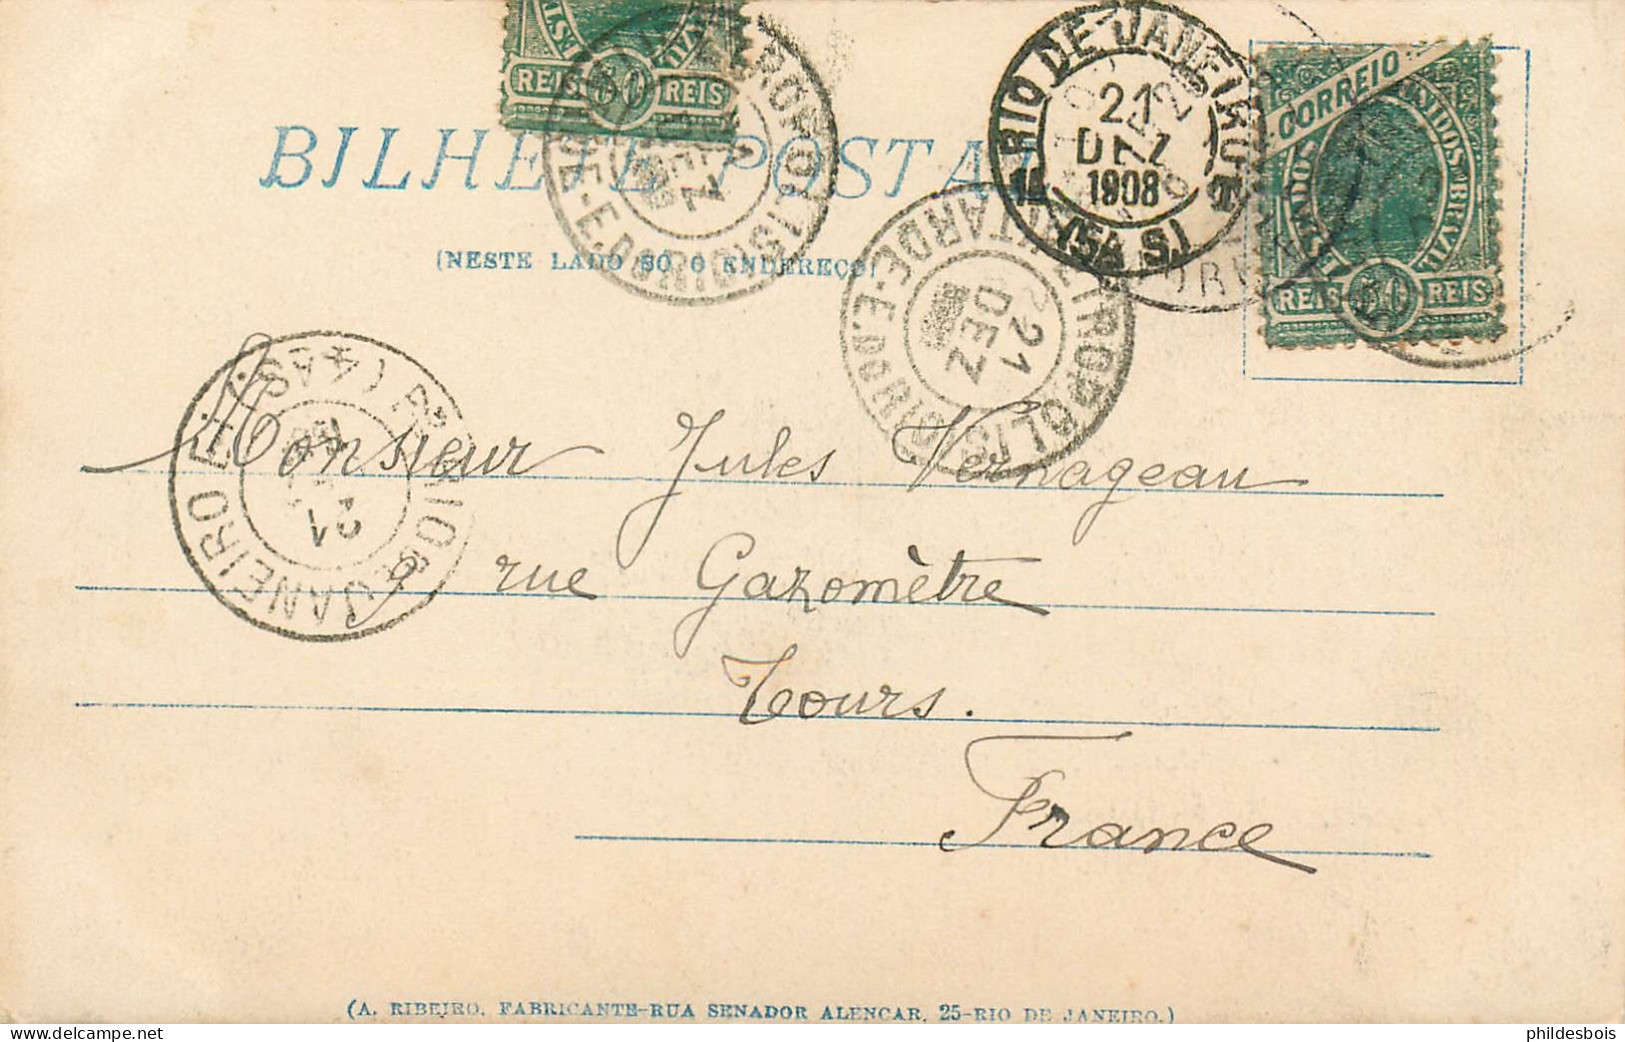 REIS 50 REIS
CORREIO
ESTADOS UNIDOS DO BRAZIL
REIS 50 REIS
RIO DE JANEIRO
21
DEZ
1908
(5A S.)
BILHETE POSTAL
(NESTE LADO SÓ O ENDEREÇO)
PETROPOLIS
TARDE-E.DO RIO
21
DEZ
JANEIRO
RIO
(4A S.)
21
Monsieur Jules Vernageau
9 rue Gazomètre
Tours.
France
(A. RIBEIRO, FABRICANTE-RUA SENADOR ALENCAR, 25-RIO DE JANEIRO.)
phildesbois